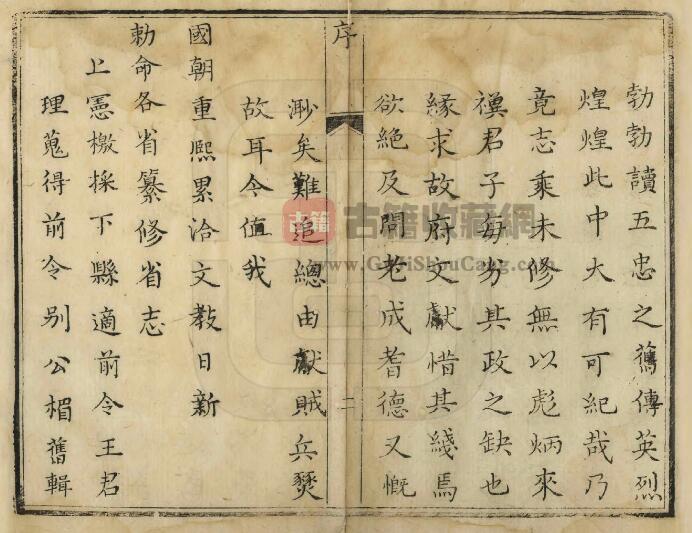 勃勃讀五忠之舊傳英烈
煌煌此中大有可紀哉乃
竟志乘未修無以彪炳來
禩君子每歎其政之缺也
緣求故府文獻惜其綫焉
欲絶及問老成耆德又慨
序
二
渺矣難追總由獻賊兵燹
故耳今值我
國朝重熙累洽文教日新
勅命各省纂修省志
上憲檄採下縣適前令王君
理蒐得前令別公楣舊輯
古籍
古籍收藏網
www.GuJiShouCang.com